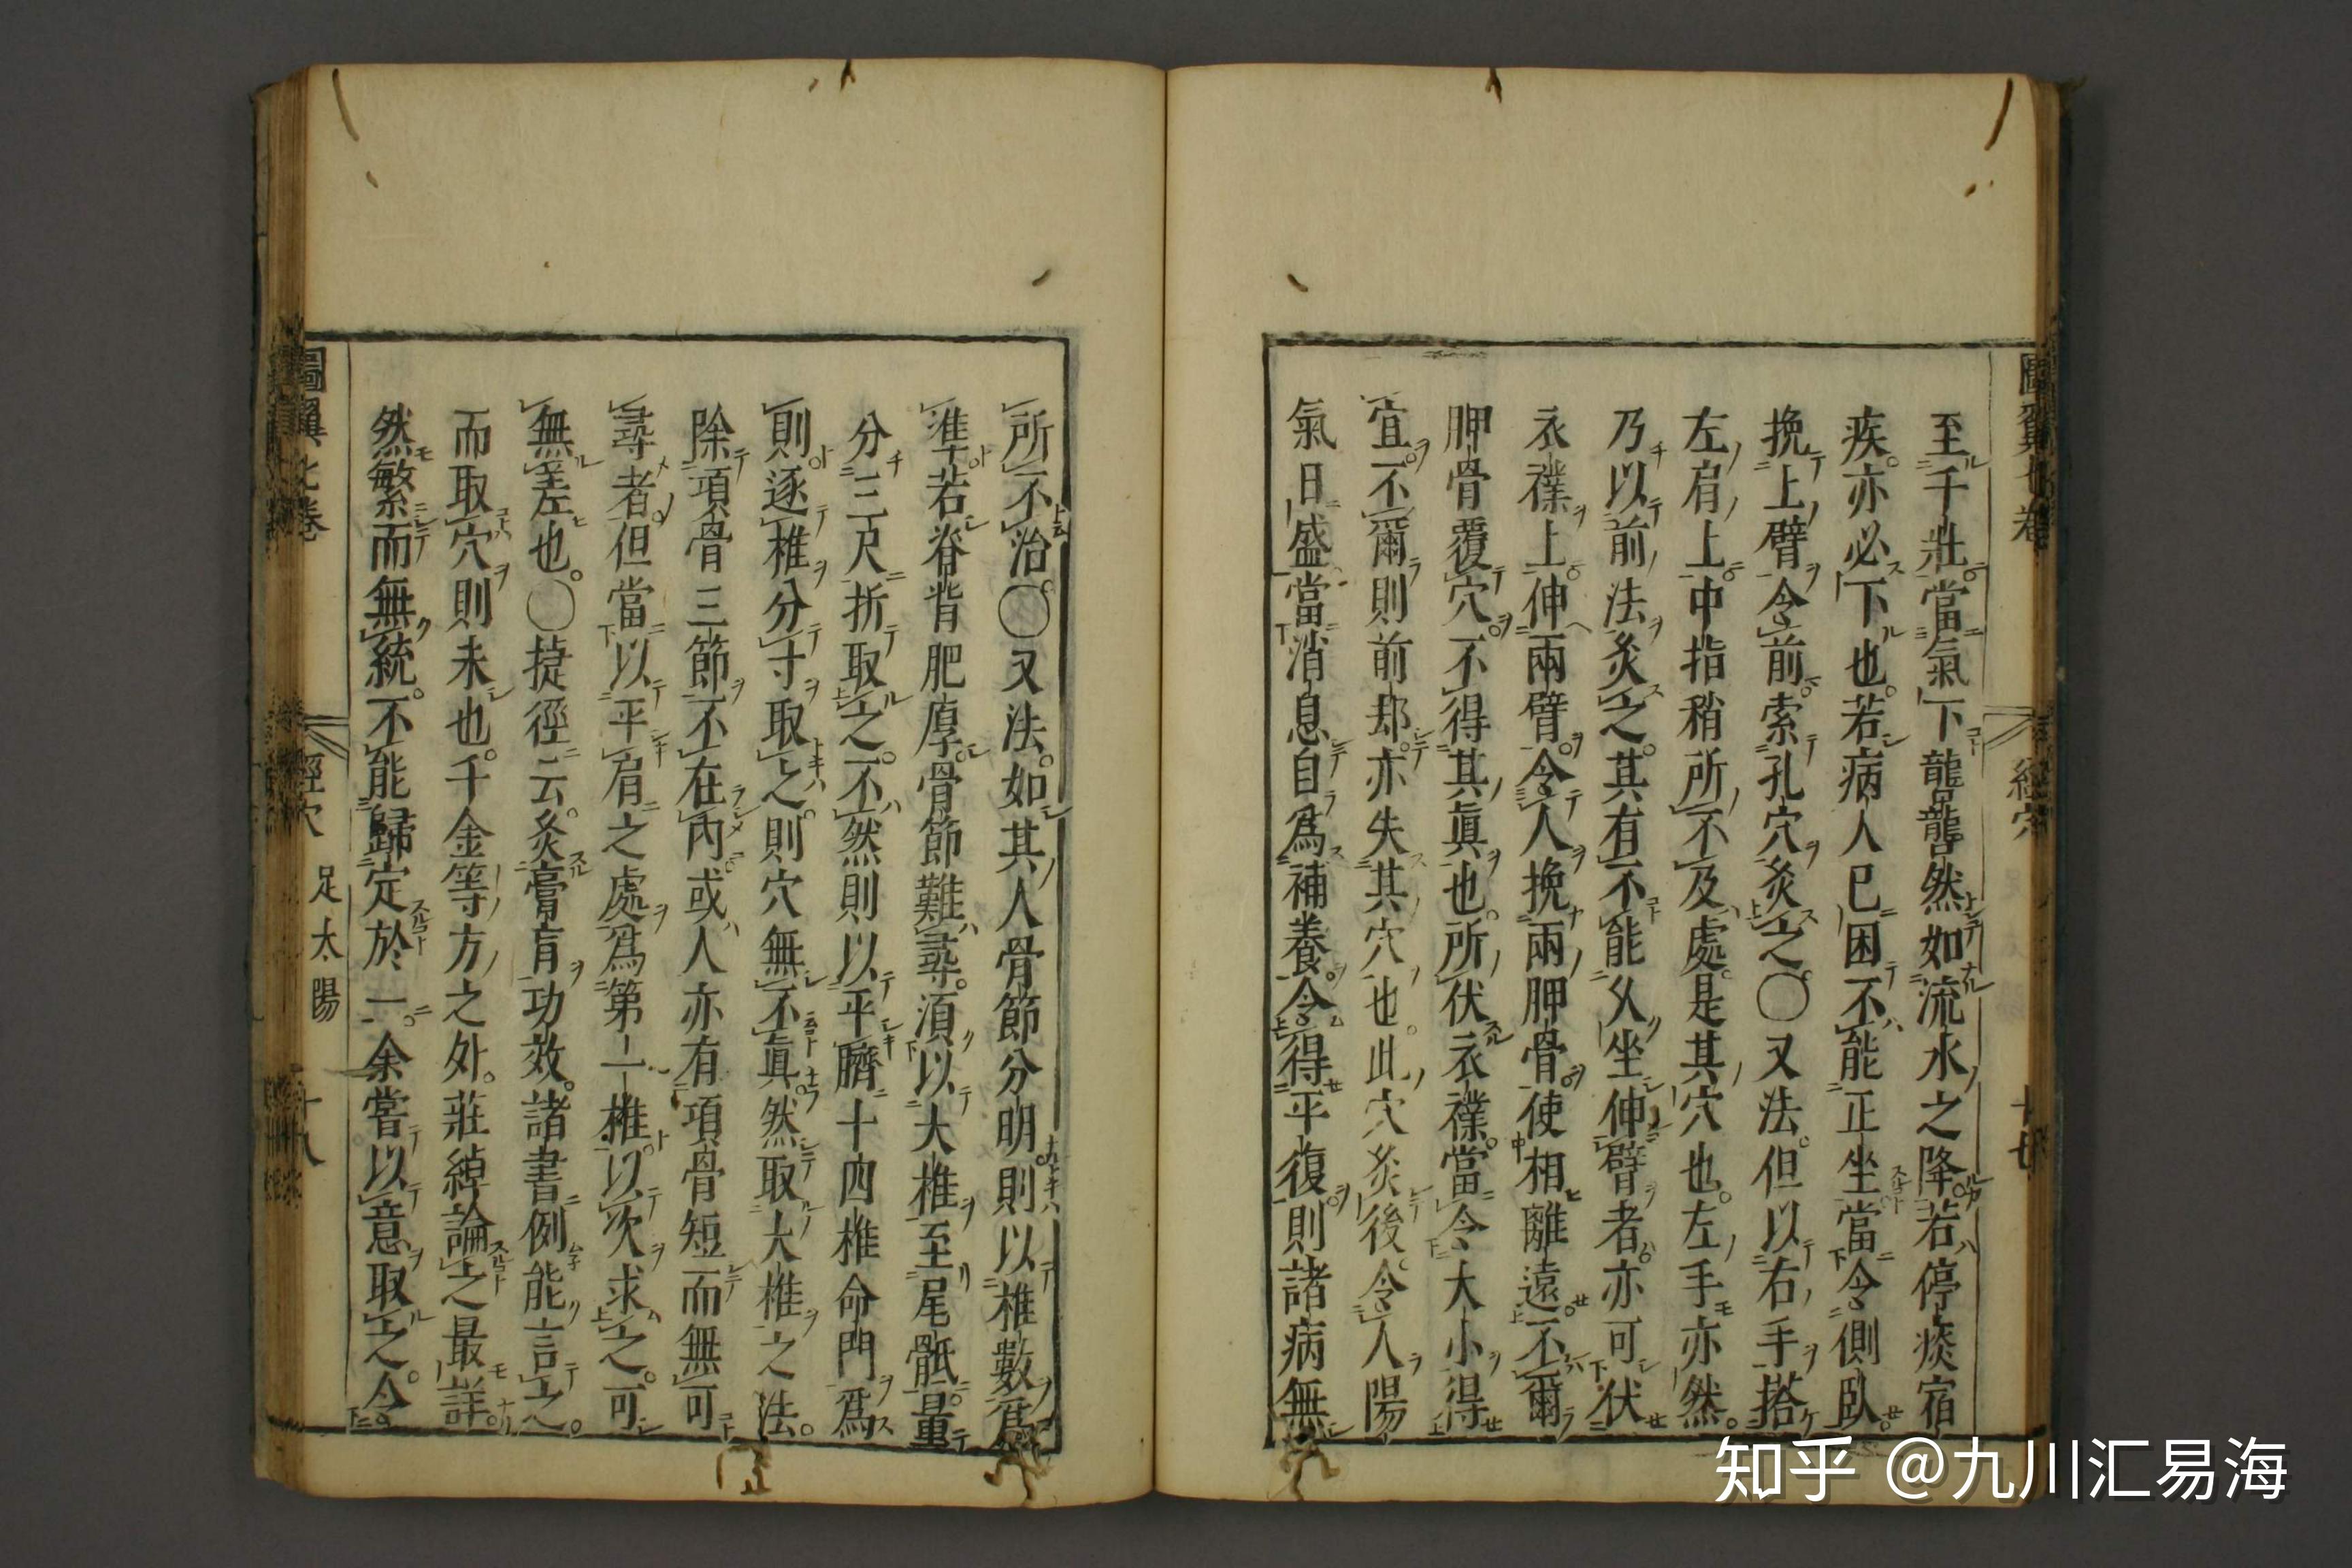 至千壯當氣下礱礱然如流水之降若停痰宿
疾亦必下也若病人已困不能正坐當令側臥
挽上臂令前索孔穴灸之〇又法但以右手搭
左肩上中指稍所不及處是其穴也左手亦然
乃以前法灸之其有不能久坐伸臂者亦可伏
衣襆上伸兩臂令人挽兩胛骨使相離遠不爾
胛骨覆穴不得其真也所伏衣襆當令大小得
宜不爾則前却亦失其穴也此穴灸後令人陽
氣日盛當消息自為補養令得平復則諸病無
所不治〇又法如其人骨節分明則以椎數為
準若脊背肥厚骨節難尋須以大椎至尾骶量
分三尺折取之不然則以平臍十四椎命門為
則逐椎分寸取之則穴無不真然取大椎之法
除項骨三節不在內或人亦有項骨短而無可
尋者但當以平肩之處為第一椎以次求之可
無差也〇捷徑云灸膏肓功效諸書例能言之
而取穴則未也千金等方之外莊綽論之最詳
然繁而無統不能歸定於一余嘗以意取之令
圖翼七卷 經穴 足太陽 十八
知乎 @九川汇易海